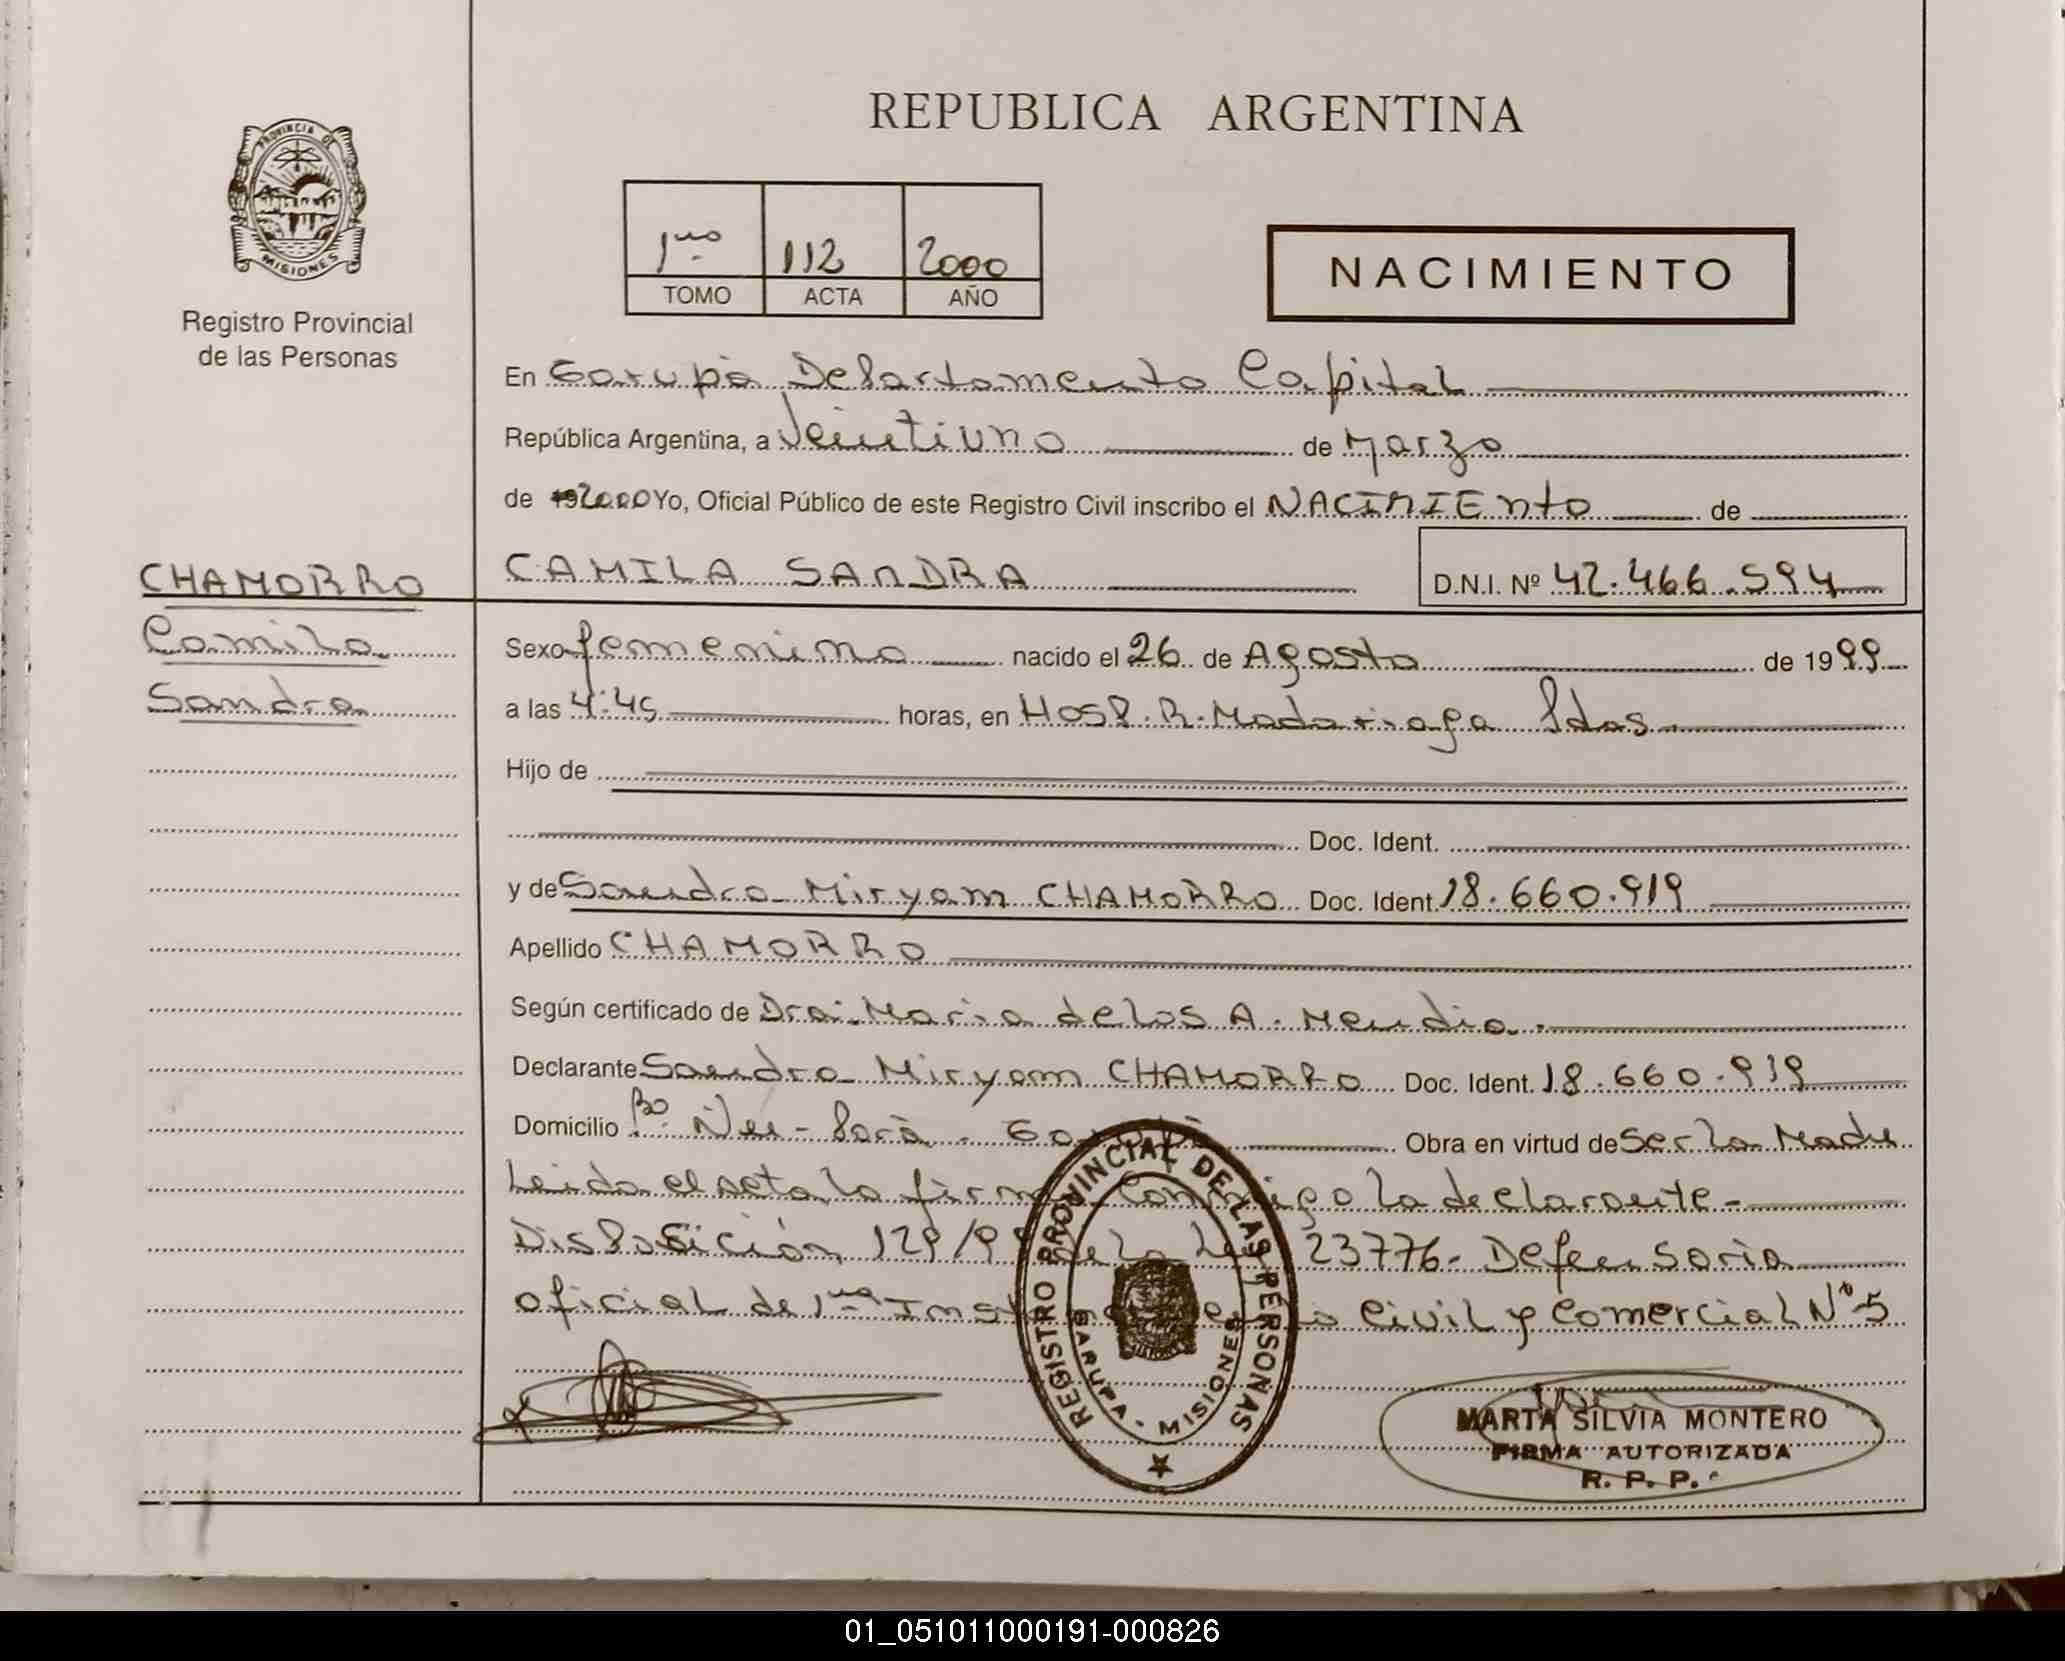 REPUBLICA ARGENTINA
PROVINCIA DE
MISIONES
Registro Provincial
de las Personas
1ro 112 2000
TOMO ACTA AÑO
NACIMIENTO
En Garupá Departamento Capital
República Argentina, a Veintiuno de Marzo
de 192000 Yo, Oficial Público de este Registro Civil inscribo el NACIMIEnto de
CHAMORRO
CAMILA SANDRA D.N.I. Nº 42.466.594
Camila
Sandra
Sexo femenino nacido el 26 de Agosto de 1999
a las 4:45 horas, en Hosp. R. Madariaga Pdas.
Hijo de
Doc. Ident.
y de Sandra Miryam CHAMORRO Doc. Ident. 18.660.919
Apellido CHAMORRO
Según certificado de Dra. Maria de los A. Mendia.
Declarante Sandra Miryam CHAMORRO Doc. Ident. 18.660.919
Domicilio Bº Ñu-Porá - Garupá Obra en virtud de Ser la Madre
Leida el acta la firma conmigo la declarante-
Disposición 129/99 de la Ley 23776- Defensoria
oficial de 1ra Inst en lo Civil y Comercial Nº 5
REGISTRO PROVINCIAL DE LAS PERSONAS
GARUPA - MISIONES
MARTA SILVIA MONTERO
FIRMA AUTORIZADA
R. P. P.
01_051011000191-000826